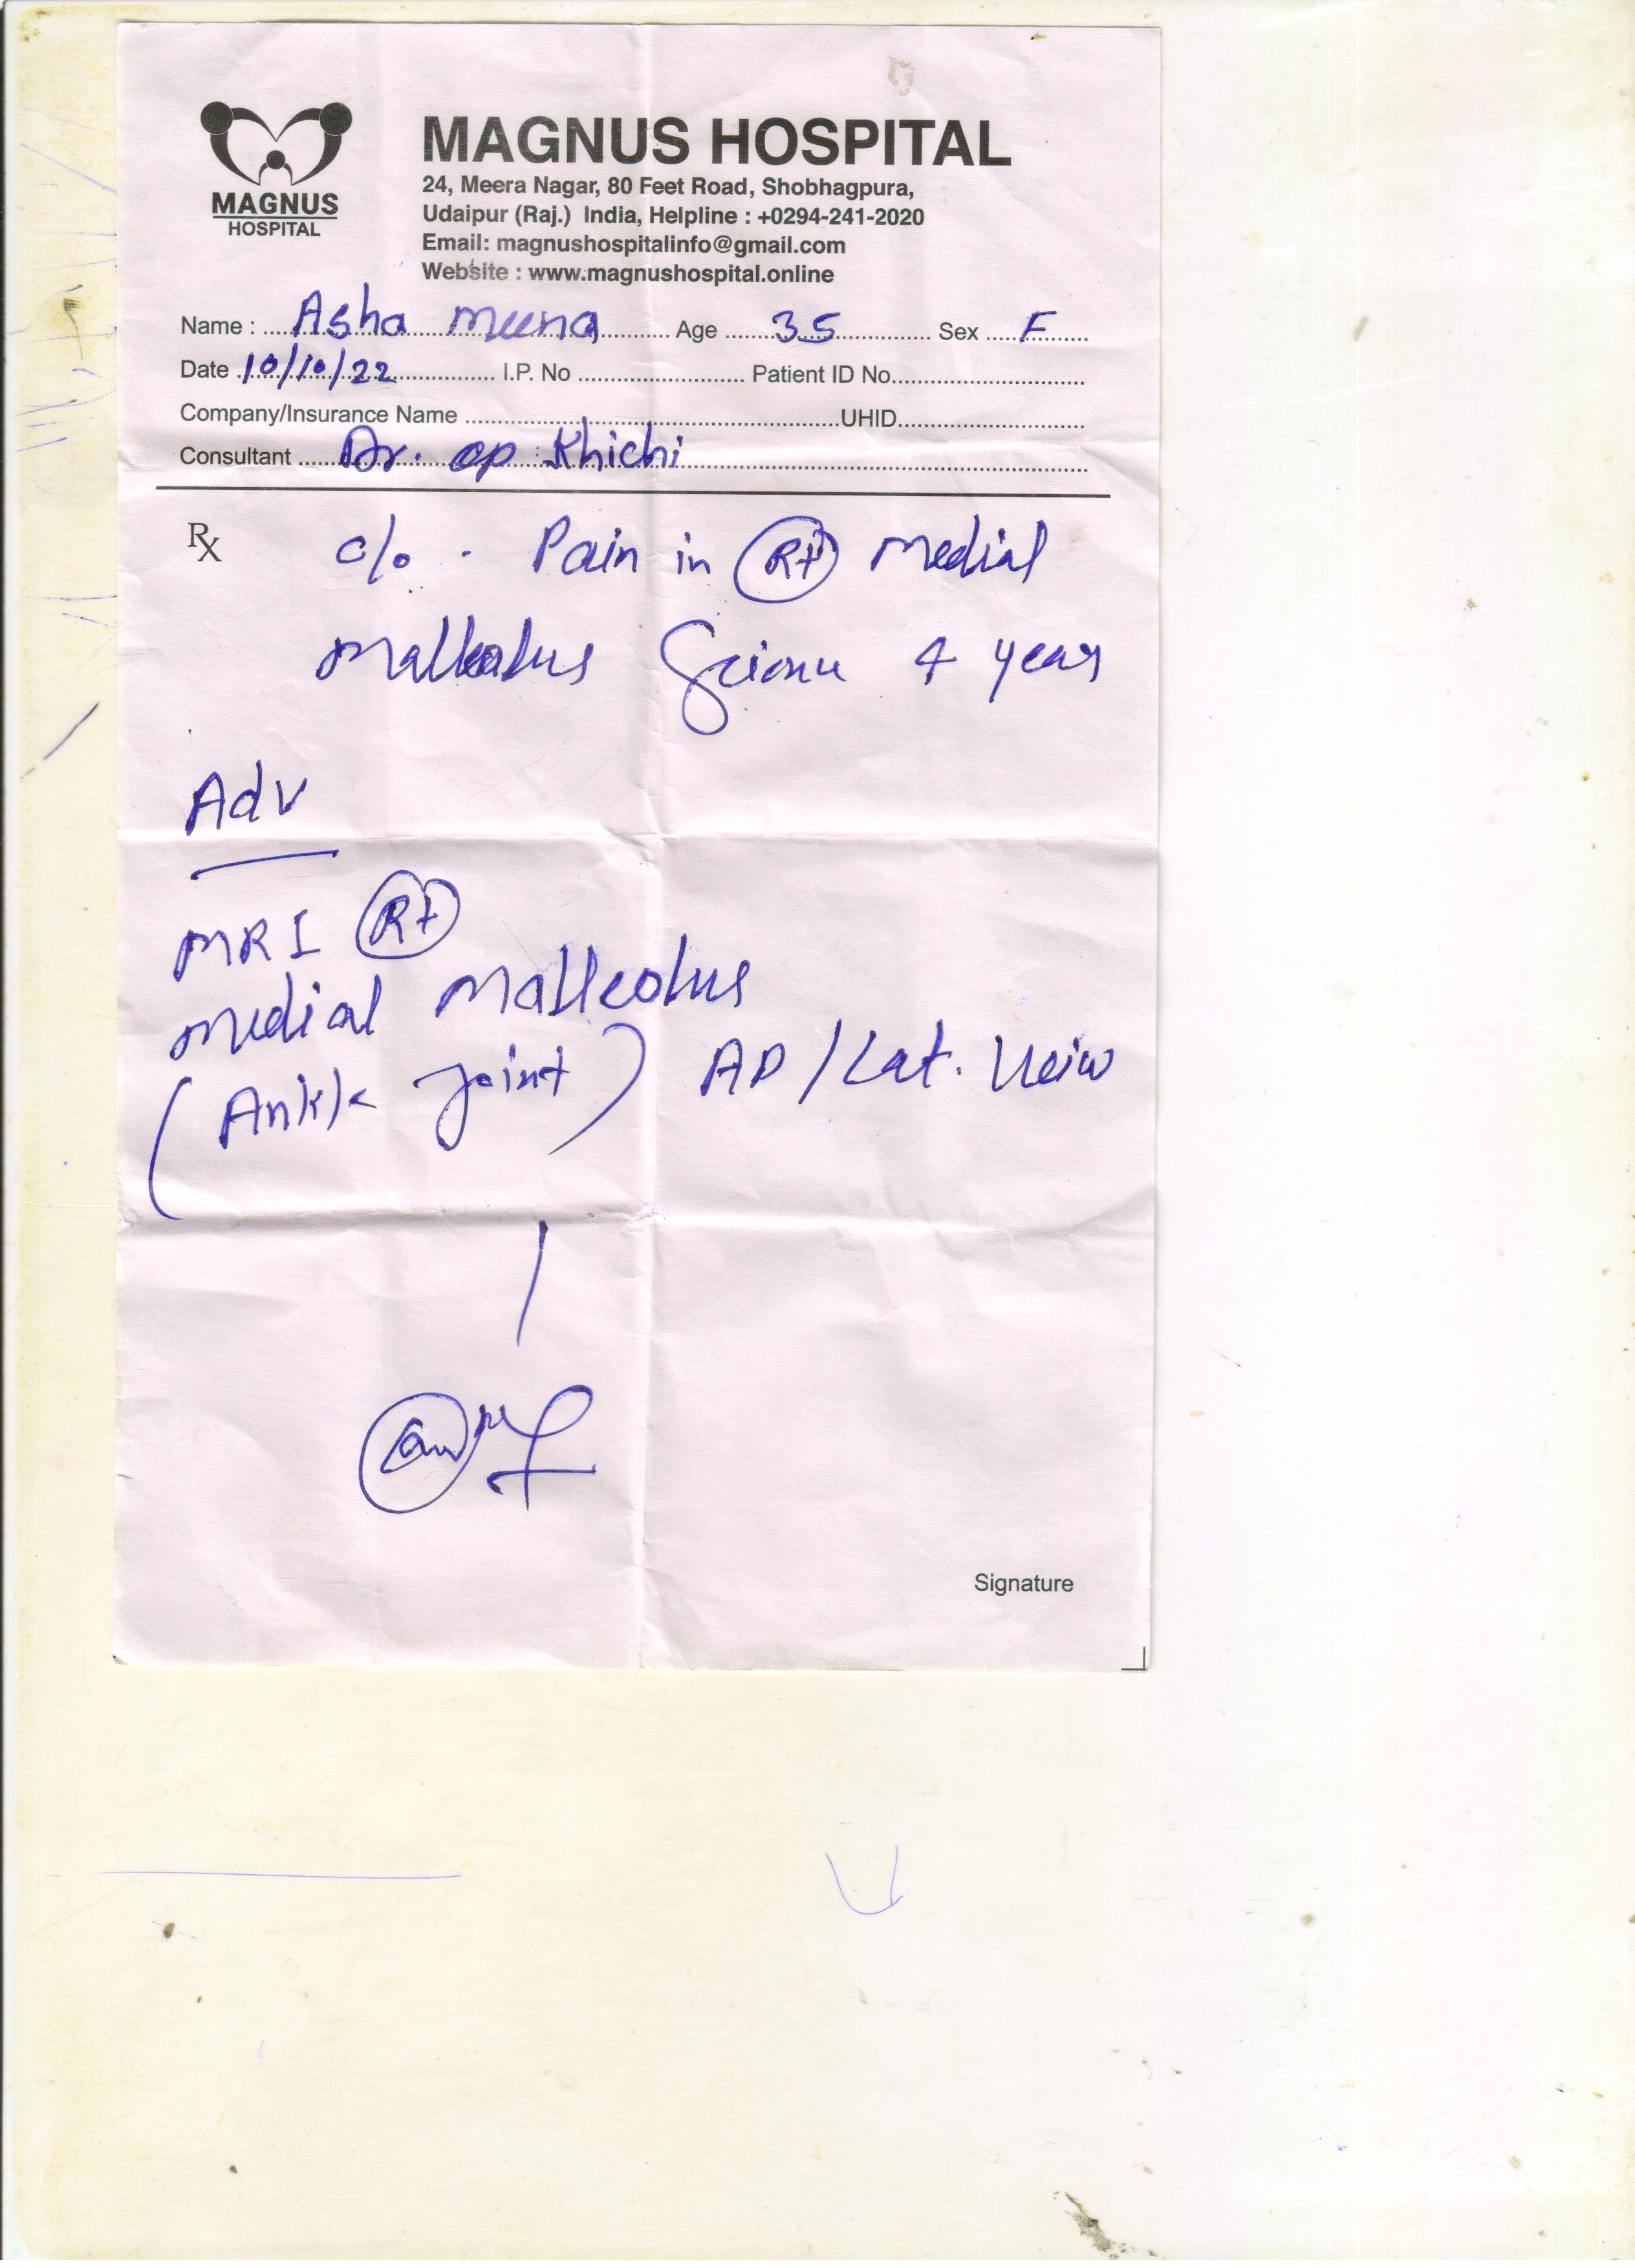 MAGNUS HOSPITAL
24, Meera Nagar, 80 Feet Road, Shobhagpura,
Udaipur (Raj.) India, Helpline : +0294-241-2020
Email: magnushospitalinfo@gmail.com
Website : www.magnushospital.online
MAGNUS
HOSPITAL
Name : Asha Meena Age 35 Sex F
Date 10/10/22 I.P. No Patient ID No.
Company/Insurance Name UHID
Consultant Dr. OP Khichi
Rx c/o - Pain in Rt Medial
Malleolus 4 year
Adv
MRI Rt
medial Malleolus
(Ankle Joint) AP/Lat. Veiw
Signature